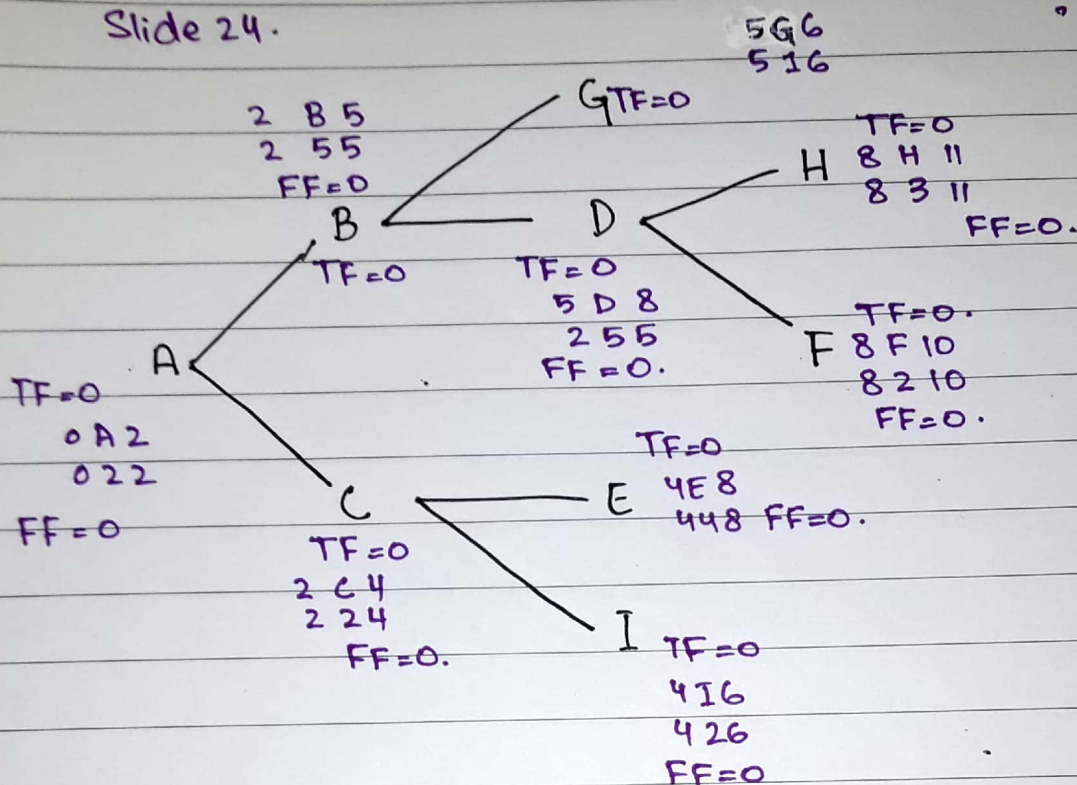 Slide 24.
5G6
516
GTF=0
2 B 5
2 55
FF=0
B
TF=0
TF=0
H 8 H 11
8 3 11
FF=0.
D
TF=0
5 D 8
2 5 5
FF=0.
TF=0.
F 8 F 10
8 2 10
FF=0.
A
TF=0
0 A 2
0 2 2
FF=0
C
TF=0
2 C 4
2 2 4
FF=0.
TF=0
E 4E 8
448 FF=0.
I TF=0
4I6
426
FF=0